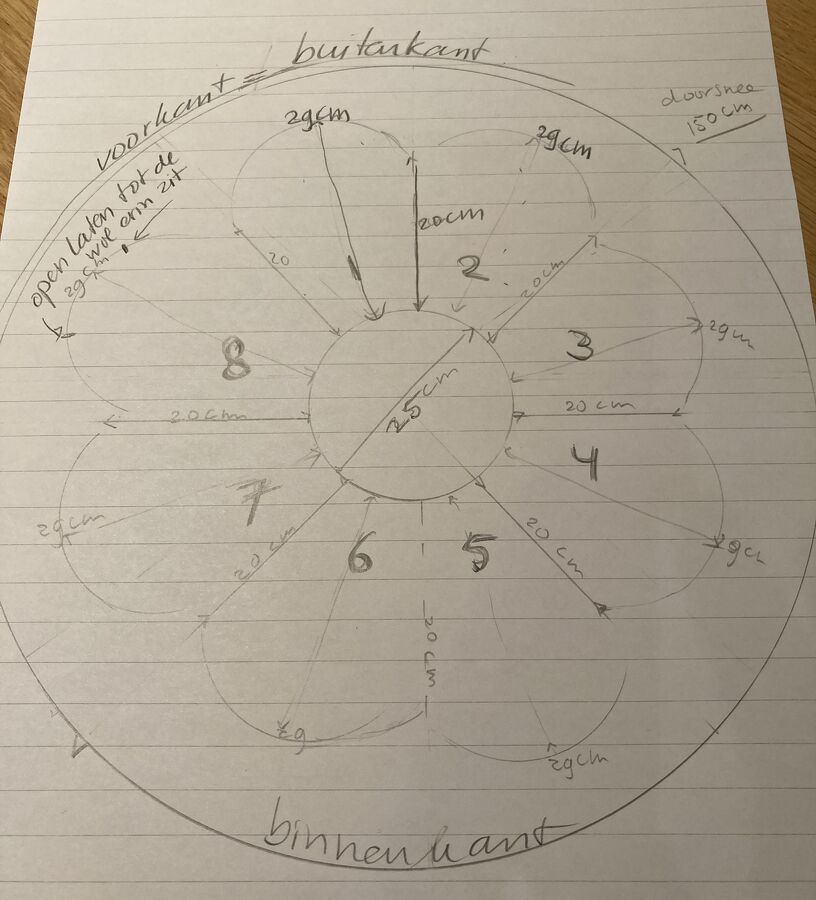 voorkant = buitenkant
doorsnee
150 cm
open laten tot de
wol erin zit
29cm
29cm
29cm
20cm
20
20cm
1
2
8
3
29cm
25cm
20cm
20cm
4
7
29cm
20cm
6
5
20cm
29cm
20cm
29
29cm
binnenkant